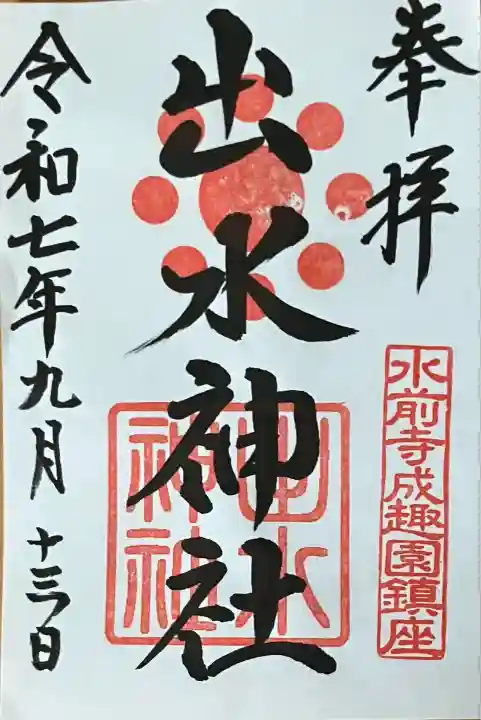 奉拝
水前寺成趣園鎮座
出水神社
出水
神社
令和七年九月十三日